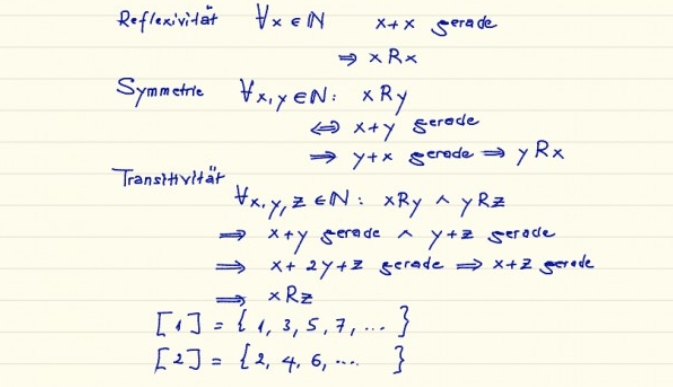 Reflexivität ∀x ∈ ℕ x+x gerade
⇒ xRx
Symmetrie ∀x,y ∈ ℕ: xRy
⇔ x+y gerade
⇒ y+x gerade ⇒ yRx
Transitivität
∀x,y,z ∈ ℕ: xRy ∧ yRz
⇒ x+y gerade ∧ y+z gerade
⇒ x+2y+z gerade ⇒ x+z gerade
⇒ xRz
[1] = {1, 3, 5, 7, ... }
[2] = {2, 4, 6, ... }